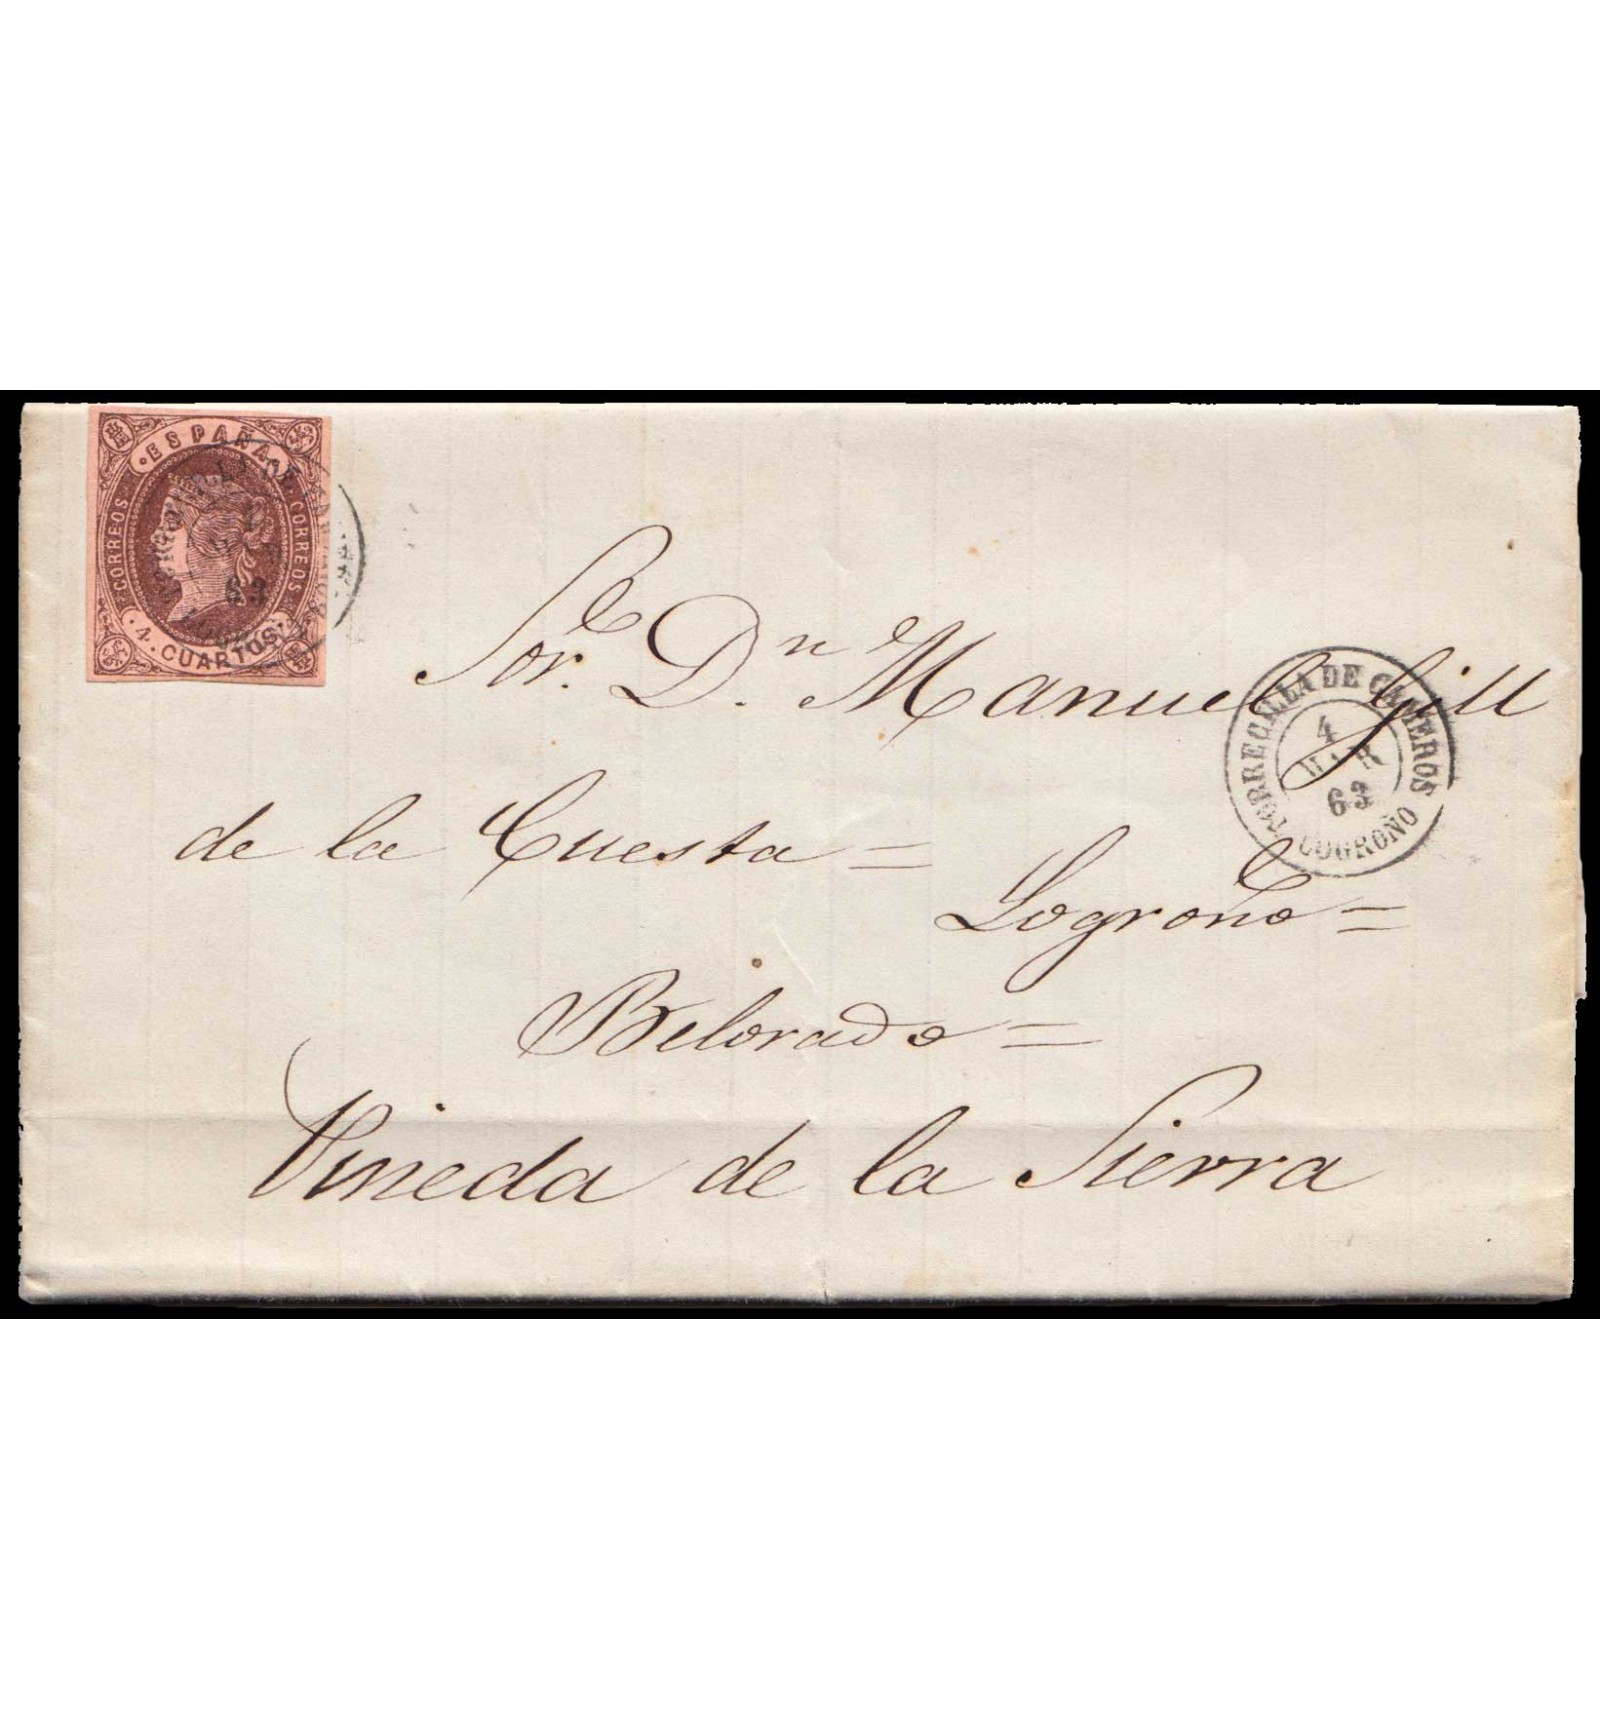 ·ESPAÑA·
CORREOS
CORREOS
4. CUARTOS
63
Sor. Dn. Manuel Gill
TORRECILLA DE CAMEROS
4
MAR
63
LOGROÑO
de la Cuesta =
Logroño =
Belorado =
Pineda de la Sierra